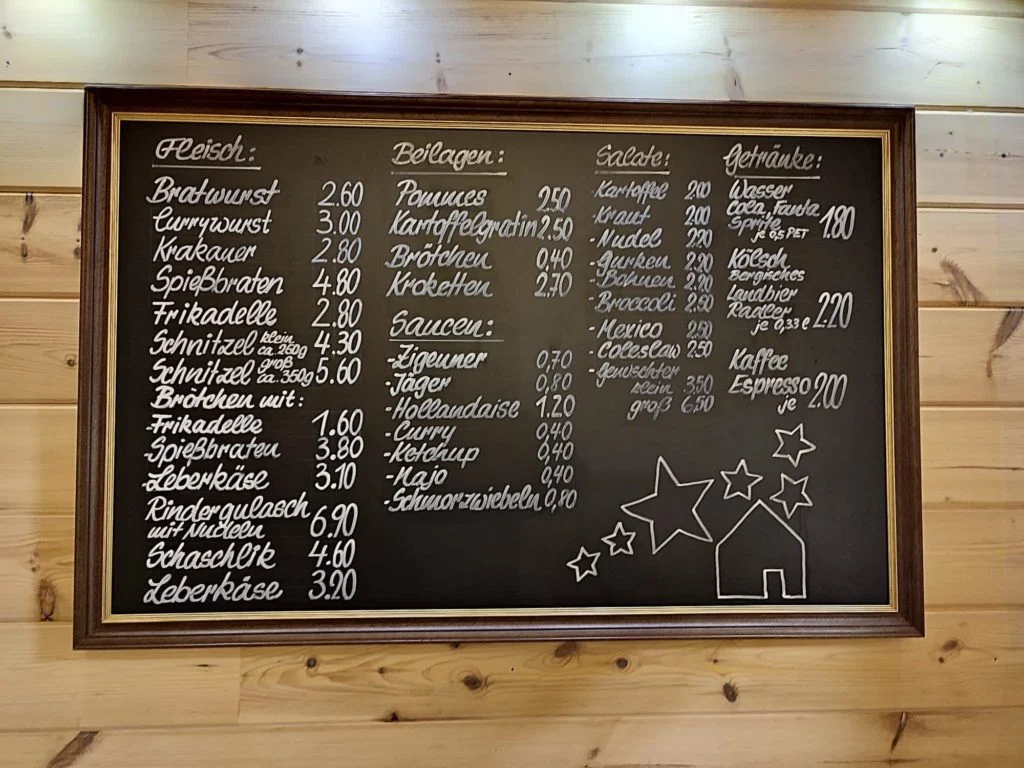 Fleisch:
Bratwurst 2.60
Currywurst 3.00
Krakauer 2.80
Spießbraten 4.80
Frikadelle 2.80
Schnitzel klein ca. 250g 4.30
Schnitzel groß ca. 350g 5.60
Brötchen mit:
-Frikadelle 1.60
-Spießbraten 3.80
-Leberkäse 3.10
Rindergulasch
mit Nudeln 6.90
Schaschlik 4.60
Leberkäse 3.20
Beilagen:
Pommes 2.50
Kartoffelgratin 2.50
Brötchen 0,40
Kroketten 2.70
Saucen:
-Zigeuner 0,70
-Jäger 0,80
-Hollandaise 1.20
-Curry 0,40
-Ketchup 0,40
-Majo 0,40
-Schmorzwiebeln 0,80
Salate:
-Kartoffel 2.00
-Kraut 2.00
-Nudel 2.20
-Gurken 2.20
-Bohnen 2.20
-Broccoli 2.50
-Mexico 2.50
-Coleslaw 2.50
-gemischter
klein 3.50
groß 6.50
Getränke:
Wasser
Cola, Fanta
Sprite 1.80
je 0,5 PET
Kölsch
Bergisches
Landbier
Radler 2.20
je 0,33 l
Kaffee
Espresso 2.00
je